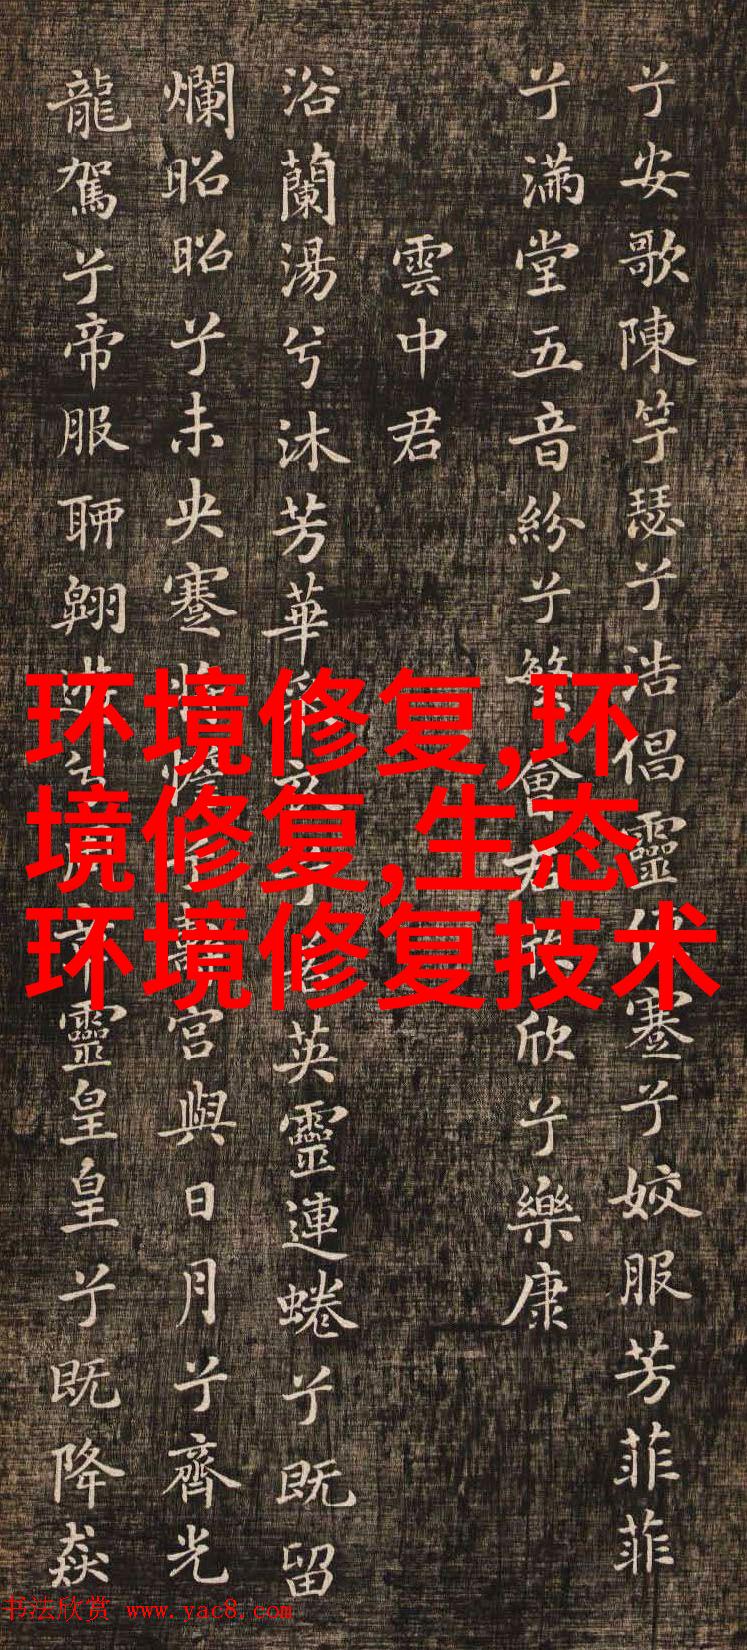 兮安歌陳竽瑟兮浩倡靈蹇兮姣服芳菲菲
兮滿堂五音紛兮繁會君欣欣兮樂康
雲中君
浴蘭湯兮沐芳華英靈連蜷兮既留
爛昭昭兮未央蹇宮與日月兮齊光
龍駕兮帝服聊翱靈皇皇兮既降猋
环境修复,环
境修复,生态
环境修复技术
书法欣赏 www.yac8.com